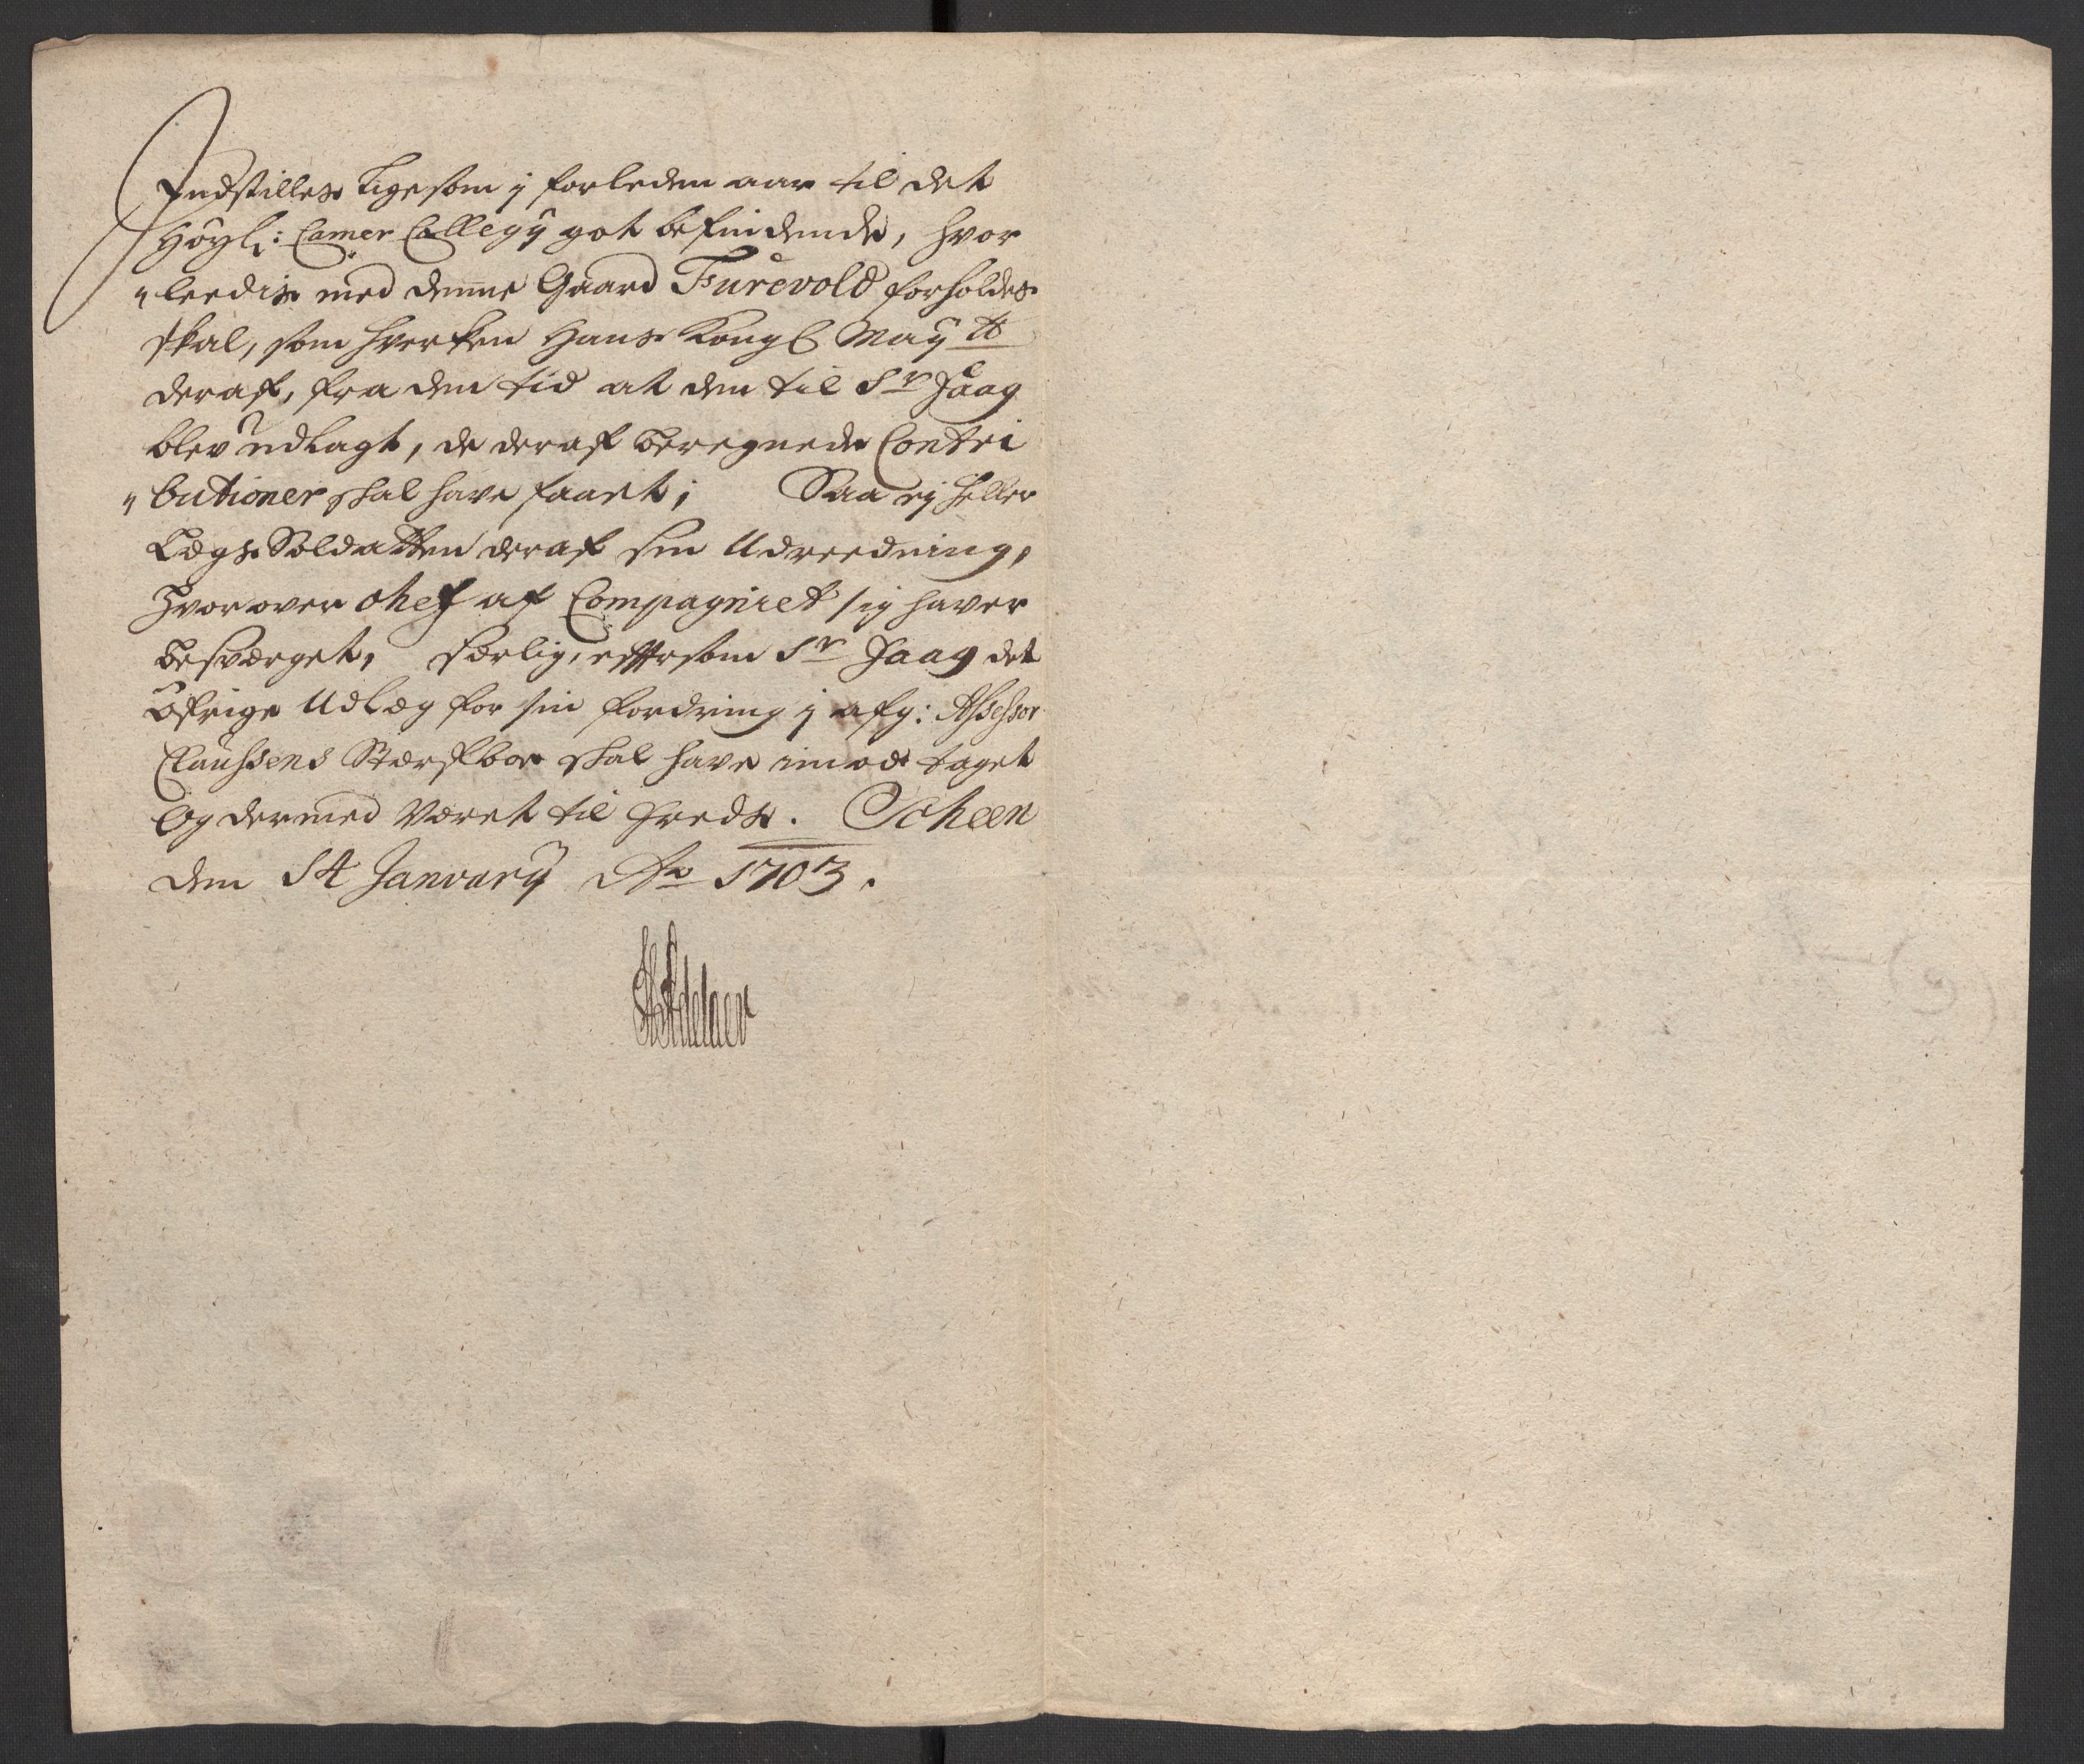 Indstilles ligesom j forleden aar til det
Høyl: Camer Collegij got befindende, hvor
"leedis med denne Gaard Furevold forholdes
skal, som hverken Hans Kongl Mayt
deraf, fra den tid at den til Sr Jaag
blev udlagt, de deraf beregnede Contri
"butioner skal have faaet; Saa ej heller
Legs Soldatten deraf sin Udreedning,
Hvorover chef af Compagniet sig haver
besværget, særlig, efftersom Sr Jaag det
øfrige Udleg for sin fordring j afg: Assessor
Claussens Sterfboe skal have imod taget
Og dermed Været til freds. Scheen
den 14 Januarij Ao 1703.
HAdelaer